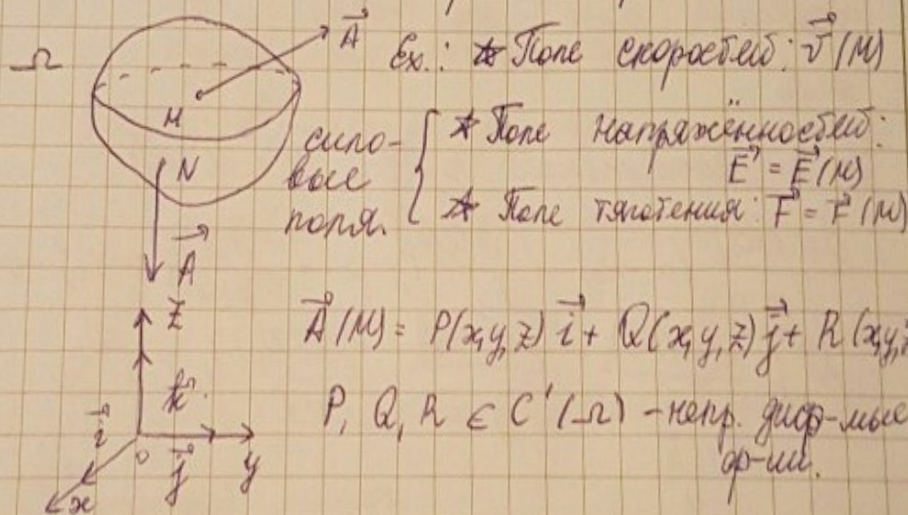 Ω
M
A⃗
N
A⃗
Ex.: * Поле скоростей: v⃗(M)
сило-
вые
поля.
* Поле напряжённостей:
E⃗ = E⃗(M)
* Поле тяготения: F⃗ = F⃗(M)
z
k⃗
i⃗
o
j⃗
y
x
A⃗(M) = P(x,y,z) i⃗ + Q(x,y,z) j⃗ + R(x,y,z
P, Q, R ∈ C'(Ω) – непр. диф-мые
ф-ии.